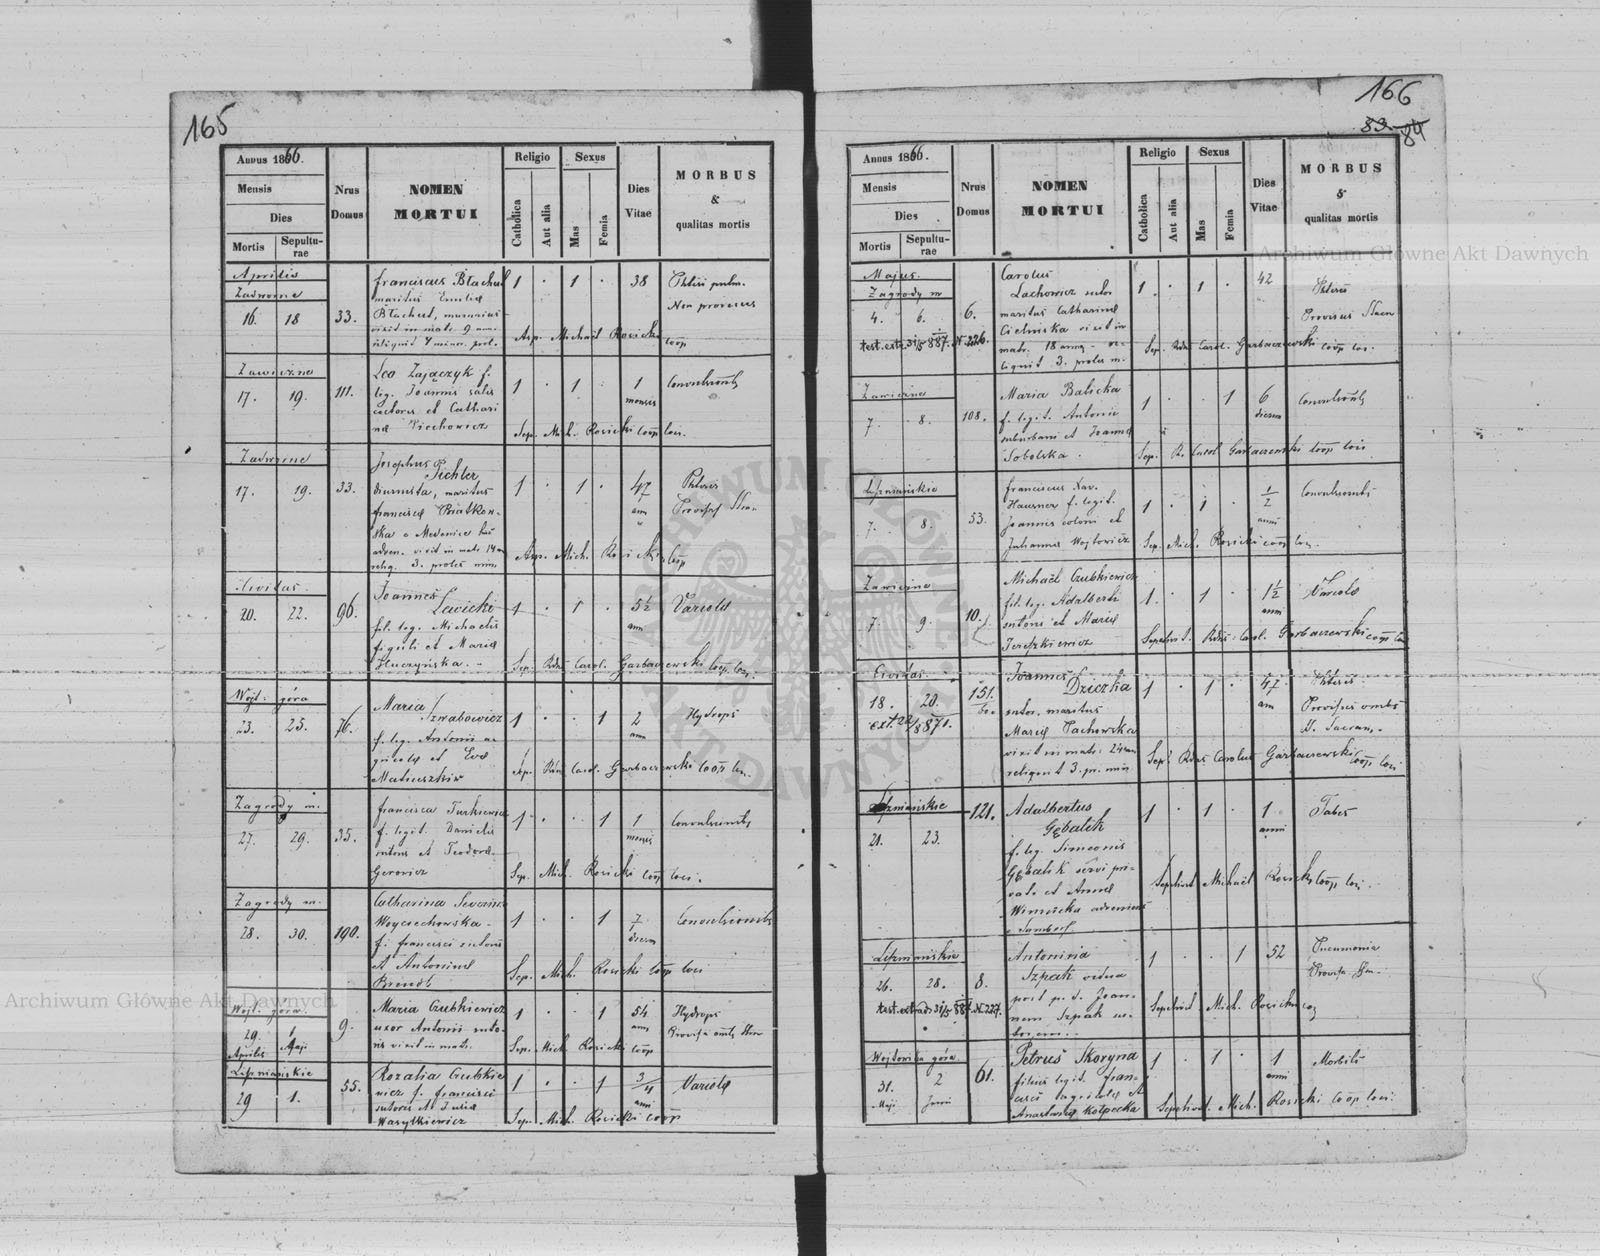 165
Annus 1866.
Mensis
Dies
Mortis
Sepulturae
Nrus Domus
NOMEN MORTUI
Religio
Catholica
Aut alia
Sexus
Mas
Femia
Dies Vitae
MORBUS
&
qualitas mortis
Aprilis
Zadworne
16. 18 33.
Franciscus Błachut
maritus Emilia
Błachut, murarius
vixit in matr. 9 ann.
reliquit 4 minor. prol.
1 . 1 . 38
Phtisi pulm.
Non provisus
Asp. Michael Rosicki coop
Zawiezna
17. 19. 111.
Leo Zajączyk f.
leg. Joannis salis
coctoris et Cathari
na Piechowicz
1 . 1 . 1 menses
Convulsionib
Sep. Mich. Rosicki coop loci.
Zadworne
17. 19. 33.
Josephus
Pichler
diurnista, maritus
Francisca
ska e Medenice
vixit in matr 14 an
reliq. 3. proles min
1 . 1 . 47 ann
Phtisis
Asp. Mich. Rosicki Coop
Civitas.
20. 22. 96.
Joannes
Lewicki
fil. leg. Michaelis
figuli et Maria
Huczyńska. -
1 . 1 . 5½ ann
Variola
Sep. Rdus Carol. Garbaczewski Coop. loci.
Wojt. góra
23. 25. 76.
Maria
Szwabowicz
f. leg. Antonii a-
gricola et Eva
Mateuszkiw
1 . . 1 2 ann
Hydrops
Sep. Rdus Carol. Garbaczewski Coop loci.
Zagrody m.
27. 29. 35.
Francisca Turkiewicz
f. legit. Danielis
sutoris et Teodora
Gerowicz
1 . . 1 1 mensis
Convulsionib
Sep. Mich. Rosicki coop loci.
Zagrody m.
28. 30. 190.
Catharina Severina
Woyciechowska -
f. Francisci sutoris
et Antonina
1 . . 1 7 dierum
Convulsionib
Sep. Mich. Rosicki Coop loci
Wojt. góra.
29. 1 9.
Aprilis Maji
Maria Czubkiewicz
uxor Antonii suto-
ris vixit in matr.
1 . . 1 54 ann
Hydrops
Sep. Mich. Rosicki coop
Leśniańskie
29 1. 55.
Rozalia Czubkie
wicz f. Francisci
sutoris et Julia
Wasylkiewicz
1 . . 1 3/4 anni
Variola
Sep. Mich. Rosicki Coop
166
83 84
Annus 1866.
Mensis
Dies
Mortis
Sepulturae
Nrus Domus
NOMEN MORTUI
Religio
Catholica
Aut alia
Sexus
Mas
Femia
Dies Vitae
MORBUS
&
qualitas mortis
Majus.
Zagrody m
4. 6. 6.
test. extr. 31/5 887. N 226.
Carolus
Lachowicz sutor
maritus Catharina
Cielniska vixit in
matr. 18 annis - re-
liquit 3. proles m.
1 . 1 . 42
Phtisis
Sep. Rdus Carol. Garbaczewski coop loc.
Zawiezna
7. 8. 108.
Maria Balicka
f. legit. Antonii
suburbani et Joanna
Sobolska.
1 . . 1 6 dierum
Convulsionib
Sep. R. Carol Garbaczewski Coop loci
Leśniańskie
7. 8. 53.
Franciscus Xav.
Hausner f. legit.
Joannis coloni et
Julianna Wojtowicz
1 . 1 . 1/2 anni
Convulsionib
Sep. Mich. Rosicki coop loci.
Zawiezna
7. 9. 10.
Michaël Czubkiewicz
fil. leg. Adalberti
sutoris et Maria
1. . 1 . 1½ anni
Variola
Sepelivit. Rdus Carol. Garbaczewski coop loci
Civitas.
18. 20. 151.
ext. 871.
Joannes
Dziczka
sutor. maritus
Maria Pachowska
vixit in matr. 24 ann
reliquit 3. pr. min
1 . 1 . 47 ann
Phtisis
Provisus omib
S. Sacram.
Sep. Rdus Carolus Garbaczewski coop. loci
Leśniańskie
21. 23. 121.
Adalbertus
Gębalik
f. leg. Simeonis
Gębalik servi pri-
vati et Anna
1 . 1 . 1 anni
Tabes
Sepelivit Michaël Rosicki Coop loci.
Leśniańskie
26. 28. 8.
test. extrad. 31/5 887. N. 227.
Antonina
Szpak vidua
post p. d. Joan-
nem Szpak
1 . . 1 52
Pneumonia
Sepelivit Mich. Rosicki coo
Wojtowska góra
31. 2 61.
Maji Junii
Petrus Skoryna
filius legit. Fran-
cisci agricola et
Anastasia Kołpecka
1 . 1 . 1 anni
Morbilis
Sepelivit. Mich. Rosicki Coop loci.
Archiwum Główne Akt Dawnych
Archiwum Główne Akt Dawnych
ARCHIWUM GŁÓWNE AKT DAWNYCH